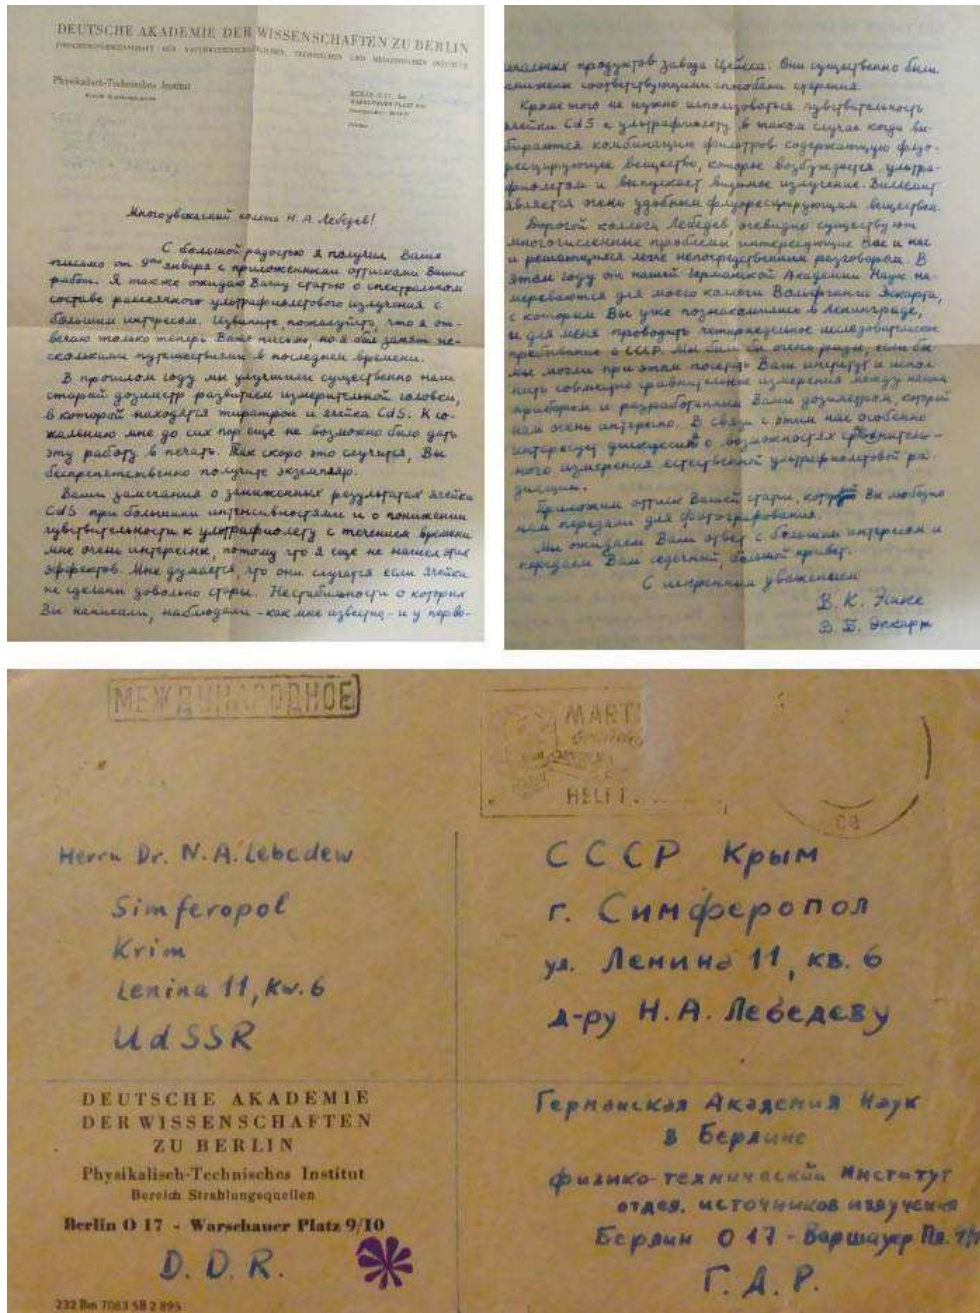 DEUTSCHE AKADEMIE DER WISSENSCHAFTEN ZU BERLIN
FORSCHUNGSGEMEINSCHAFT DER NATURWISSENSCHAFTLICHEN, TECHNISCHEN UND MEDIZINISCHEN INSTITUTE
Physikalisch-Technisches Institut
Многоуважаемый коллега Н. А. Лебедев!
С большой радостью я получил Ваше
письмо от 9ого января с приложенными оттисками Ваших
работ. Я также ожидаю Вашу статью о спектральном
составе рассеянного ультрафиолетового излучения с
большим интересом. Извините, пожалуйста, что я от-
вечаю только теперь Ваше письмо, но я был занят не-
сколькими путешествиями в последнем времени.
В прошлом году мы улучшили существенно наш
старый дозиметр развитием измерительной головки,
в которой находятся тиратрон и ячейка CdS. К со-
жалению мне до сих пор еще не возможно было дать
эту работу в печать. Так скоро это случится, Вы
беспрепятственно получите экземпляр.
Ваши замечания о заниженных результатах ячейки
CdS при большими интенсивностями и о понижении
чувствительности к ультрафиолету с течением времени
мне очень интересны, потому что я еще не нашел этих
эффектов. Мне думается, что они случатся если ячейки
не сделаны довольно стары. Нестабильности о которых
Вы написали, наблюдали - как мне известно - и у перво-
начальных продуктов завода Цейсса. Они существенно были
снижены соответствующими способами старения.
Кроме того не нужно использоваться чувствительность
ячейки CdS к ультрафиолету в таком случае когда вы-
бираются комбинацию фильтров содержающую флуо-
ресцирующее вещество, которое возбуждается ультра-
фиолетом и выпускает видимое излучение.
является очень удобным флуоресцирующим веществом.
Дорогой коллега Лебедев, очевидно существуют
многочисленные проблемы интересующие Вас и нас
и решающиеся легче непосредственным разговором. В
этом году от нашей Германской Академии Наук на-
мереваются для моего коллеги Вольфганга Эккарта,
с которым Вы уже познакомились в Ленинграде,
и для меня проводить четырнедельное исследовательское
пребывание в СССР. Мы были бы очень рады, если бы
мы могли при этом посетить Ваш институт и испол-
нить совместно сравнительные измерения между нашим
прибором и разработанным Вами дозиметром, который
нам очень интересно. В связи с этим нас особенно
интересует дискуссия о возможностях сравнитель-
ного измерения естественной ультрафиолетовой ра-
диации.
Приложим оттиск Вашей статьи, который Вы любезно
нам передали для фотографирования.
Мы ожидаем Ваш ответ с большим интересом и
передаем Вам сердечный, большой привет.
С искренним уважением
В. К.
В. Б. Эккарт
МЕЖДУНАРОДНОЕ
MART
HELFT
Herrn Dr. N. A. Lebedew
Simferopol
Krim
Lenina 11, Kw. 6
UdSSR
СССР Крым
г. Симферополь
ул. Ленина 11, кв. 6
д-ру Н. А. Лебедеву
DEUTSCHE AKADEMIE
DER WISSENSCHAFTEN
ZU BERLIN
Physikalisch-Technisches Institut
Bereich Strahlungsquellen
Berlin O 17 - Warschauer Platz 9/10
D. D. R.
232 Bm 7063 58 2 895
Германская Академия Наук
в Берлине
физико-технический Институт
отдел. источников излучения
Берлин О 17 - Варшауер Пл.
Г. Д. Р.